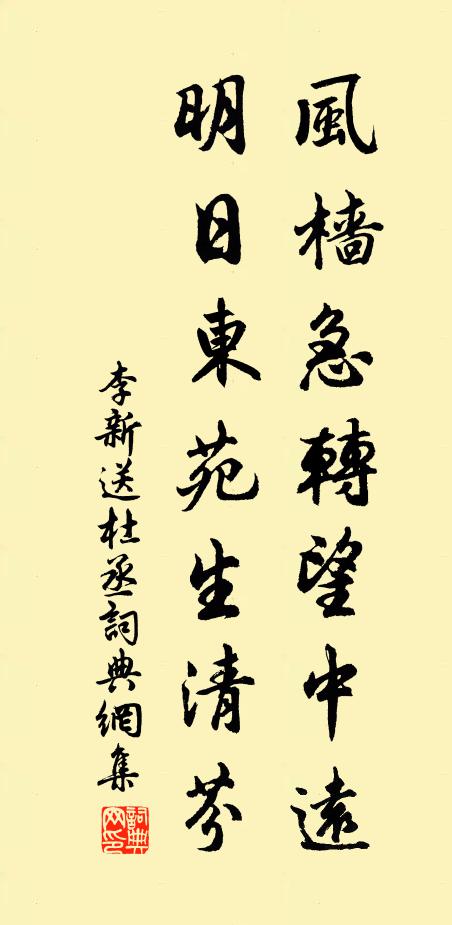 風檣急轉望中遠
明日東苑生清芬
李新送杜丞詞典網集
詞典網印